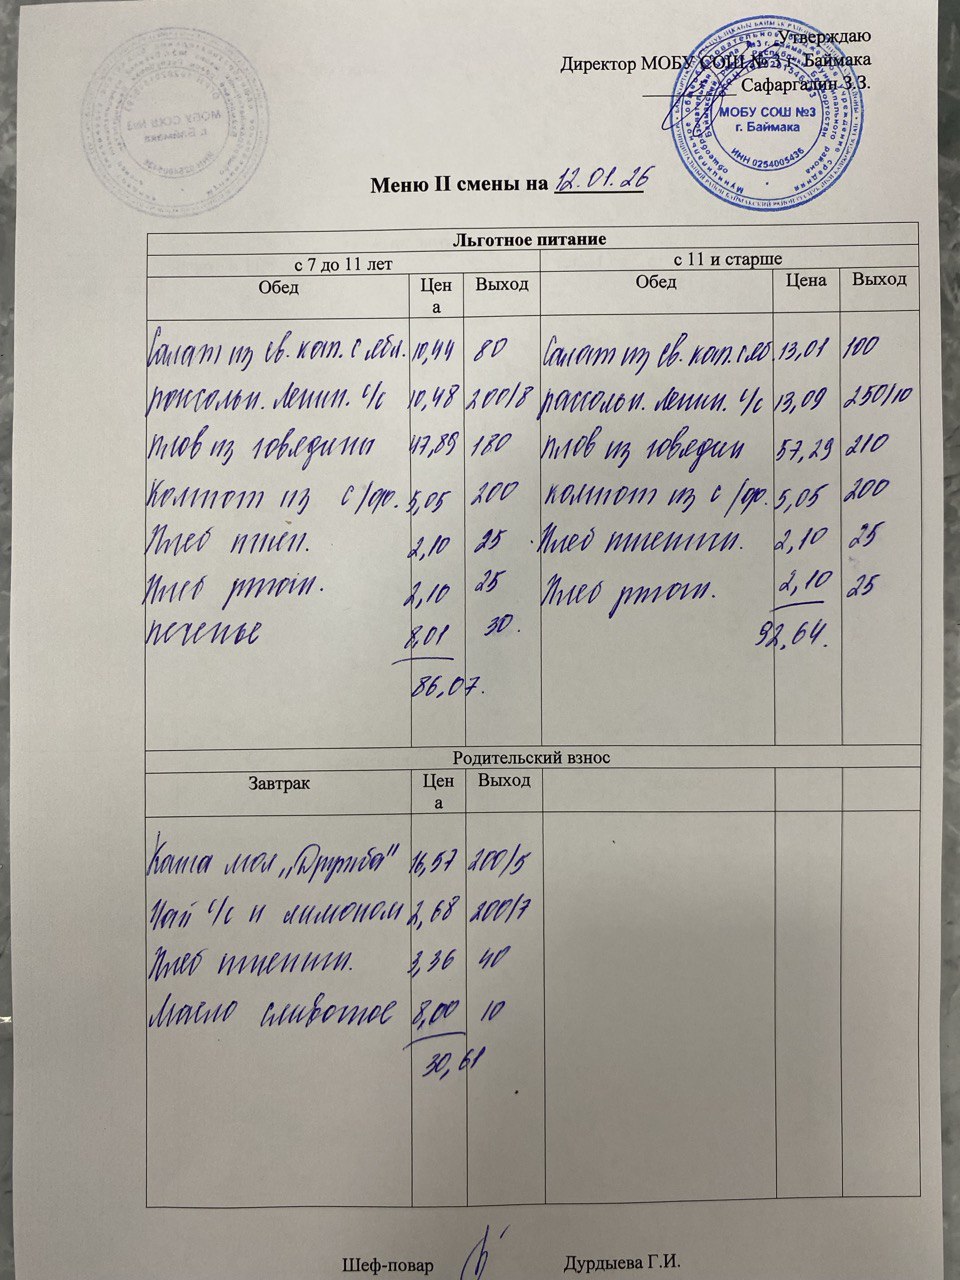 Утверждаю
Директор МОБУ СОШ №3 г. Баймака
Сафаргалин З.З.
МОБУ СОШ №3
г. Баймака
ИНН 0254005436
Меню II смены на 12.01.26
Льготное питание
с 7 до 11 лет с 11 и старше
Обед Цена Выход Обед Цена Выход
Салат из св. кап. с ябл. 10,44 80 Салат из св. кап. с яб. 13,01 100
рассольн. Ленин. с/с 10,48 200/8 рассольн. Ленин. с/с 13,09 250/10
плов из говядины 47,89 180 плов из говядин 57,29 210
Компот из с/фр. 5,05 200 компот из с/фр. 5,05 200
Хлеб пшен. 2,10 25 Хлеб пшенич. 2,10 25
Хлеб ржан. 2,10 25 Хлеб ржан. 2,10 25
печенье 8,01 30. 92,64.
86,07.
Родительский взнос
Завтрак Цена Выход
Каша мол „Дружба" 16,57 200/5
Чай с/с и лимоном 2,68 200/7
Хлеб пшенич. 3,36 40
Масло сливочное 8,00 10
30,61
Шеф-повар Дурдыева Г.И.